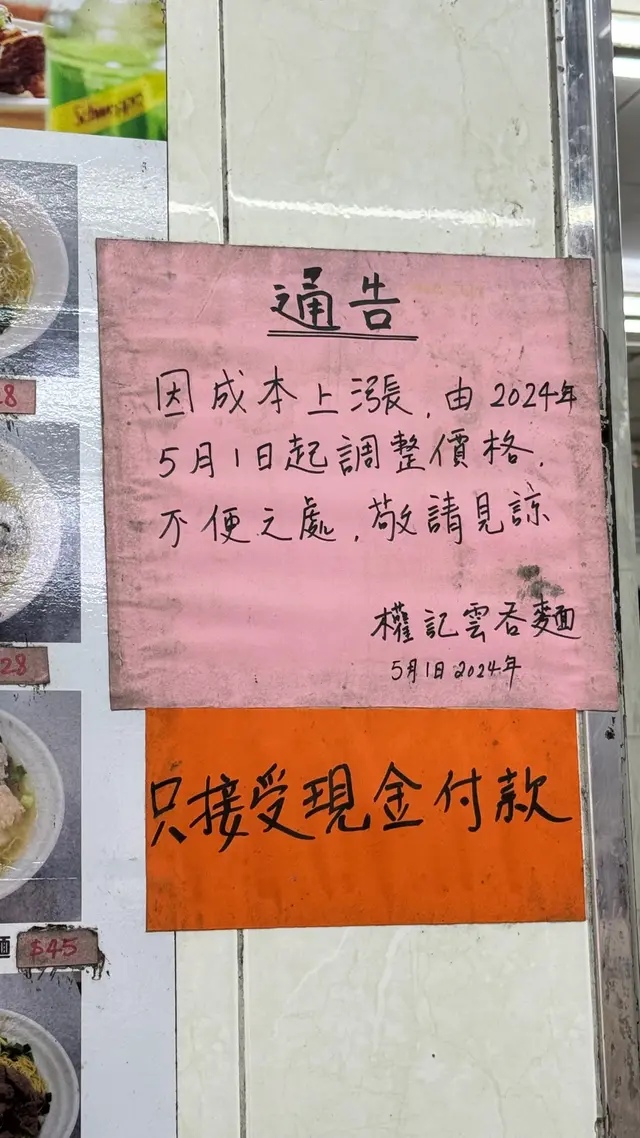 Schweppes
通告
因成本上漲,由2024年
5月1日起調整價格.
不便之處,敬請見諒
權記雲吞麵
5月1日2024年
只接受現金付款
28
28
麵 $45